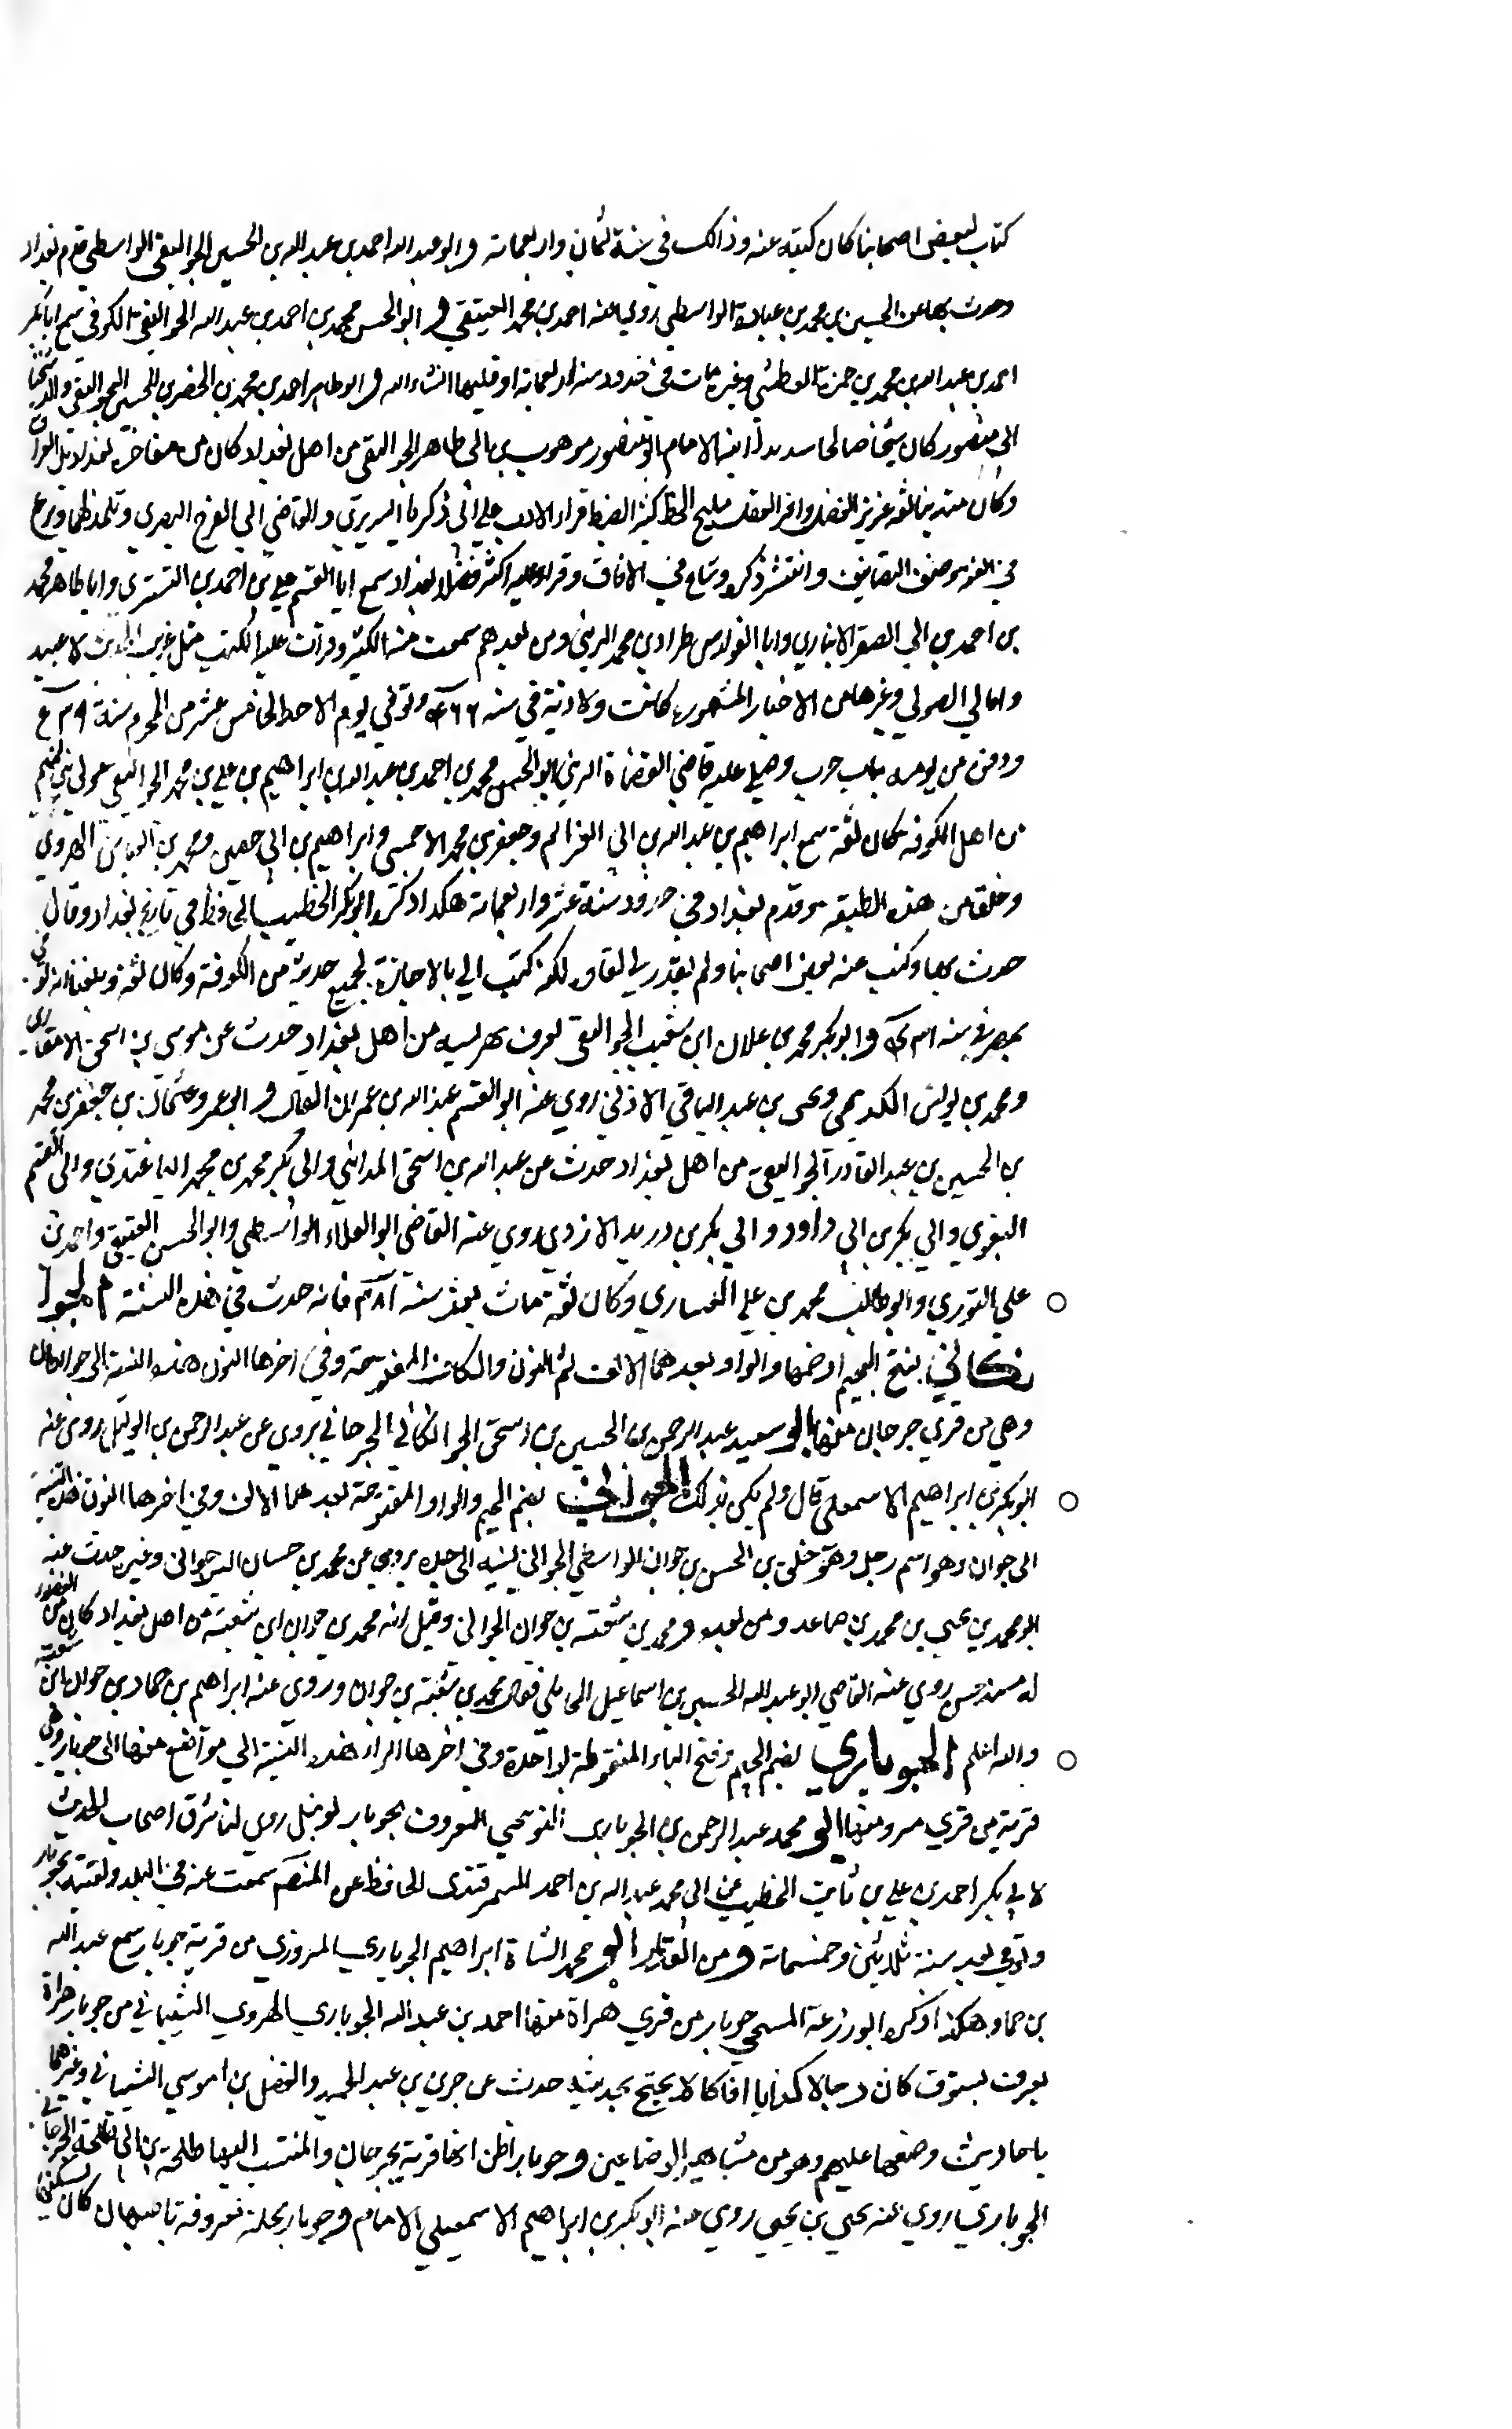 كتاب لبعض اصحابنا كان كتبته عنه وذالك في سنة ثمان واربعمائة و ابو عبد الله احمد بن عبد الله بن الحسين الجواليقي الواسطي قدم بغداد
وحدث بها عن الحسين بن محمد بن عبادة الواسطي روي عنه احمد بن محمد العتيقي و ابو الحسن محمد بن احمد بن عبد الله الجواليقي الكوفي سمع ابا بكر
احمد بن عبد الله بن محمد بن حمزة وغيره مات في حدود سنة اربعمائة او قبلها انشاء الله و ابو طاهر احمد بن محمد بن الخضر بن الحسن الجواليقي والد شيخنا
ابي منصور كان شيخا صالحا سديدا ابنه الامام ابو منصور موهوب بن ابي طاهر الجواليقي من اهل بغداد كان من مفاخر بغداد بل العراق
وكان متدينا ثقه غزير الفضل وافر العقل مليح الخط كثير الضبط قراء الادب علي ابي زكريا التبريزي والقاضي ابي الفرج البصري وتلمذ لهما وبرع
في اللغه وصنف التصانيف وانتشر ذكره وشاع في الافاق وقراء عليه اكثر فضلاء بغداد سمع ابا القسم علي بن احمد بن التستري وابا طاهر محمد
بن احمد بن ابي الصقر الانباري وابا الفوارس طراد بن محمد الزينبي ومن بعدهم سمعت منه الكثير وقرات عليه الكتب مثل غريب الحديث لابي عبيد
وامالي الصولي وغيرها من الاخبار المشهوره كانت ولادته في سنة ٤٦٦ وتوفي يوم الاحد الخامس عشر من المحرم سنة
ودفن من يومه بباب حرب وصلي عليه قاضي القضاة الزينبي ابو الحسن محمد بن احمد بن عبد الله بن ابراهيم بن علي بن محمد الجواليقي مولى بني تميم
من اهل الكوفه كان ثقه سمع ابراهيم بن عبد الله بن ابي العزائم وجعفر بن محمد الاحمسي وابراهيم بن ابي حصين ومحمد بن العباس الهروي
وخلقا من هذه الطبقه وقدم بغداد في حدود سنة عشر واربعمائة هكذا ذكره ابو بكر الخطيب الحافظ في تاريخ بغداد وقال
حدث بها وكتب عنه بعض اصحابنا ولم يقدر لي لقاؤه لكنه كتب الي بالاجازة بجميع حديثه من الكوفة وكان ثقه وبلغنا انه توفي
بمصر في سنة و ابو بكر محمد بن علان ابن شعيب الجواليقي يعرف من اهل بغداد حدث عن موسي بن اسحق الانصاري
ومحمد بن يونس الكديمي ويحيى بن عبد الباقي الاذني روي عنه ابو القسم عبد الله بن عمر بن البقال و ابو عمرو عثمان بن جعفر بن محمد
بن الحسين بن عبد القادر الجواليقي من اهل بغداد حدث عن عبد الله بن اسحق المدائني وابي بكر محمد بن محمد الباغندي وابي القسم
البغوي وابي بكر بن ابي داود وابي بكر بن دريد الازدي روي عنه القاضي ابو العلاء الواسطي وابو الحسن العتيقي واحمد بن
علي التوزي وابو طالب محمد بن علي العشاري وكان ثقة مات بعد سنة ٣٨١ فانه حدث في هذه السنة م الجوا
نكاني بفتح الجيم او ضمها والواو بعدهما الالف ثم النون والكاف المفتوحة وفي اخرها النون هذه النسبة الى جوانكان
وهي من قري جرجان منها ابو سعيد عبد الرحمن بن الحسين بن اسحق الجوانكاني الجرجاني يروي عن عبد الرحمن بن الوليد روى عنه
ابو بكر بن ابراهيم الاسمعلي قال ولم يكن بذلك الجواني بضم الجيم والواو المفتوحة بعدهما الالف وفي اخرها النون هذه النسبة
الى جوان وهو اسم رجل وهو خلف بن الحسن بن جوان الواسطي الجواني ينسب الى جده يروي عن محمد بن حسان البرجواني وغيره حدث عنه
ابو محمد بن يحيي بن محمد بن صاعد ومن بعده و محمد بن شعبه بن جوان الجواني وقيل انه محمد بن جوان ابن شعبة من اهل بغداد كان من
له مسند حسن روي عنه القاضي ابو عبد الله الحسين بن اسماعيل المحاملي فقال محمد بن شعبة بن جوان وروي عنه ابراهيم بن حماد بن جوان ابن شعبة
والله اعلم م الجوباري بضم الجيم وفتح الباء المنقوطه بواحدة وفي اخرها الراء هذه النسبة الي مواضع منها الى جوبار وهي
قرية من قري مرو ومنها ابو محمد عبد الرحمن بن الجوباري البوسنجي المعروف بجوبار روي لنا شرف اصحاب الحديث
لابي بكر احمد بن علي بن ثابت الخطيب عن ابي محمد عبد الله بن احمد السمرقندي الحافظ عن المصنف سمعت عنه في البلد ولقيته بجوبار
وتوفي بعد سنة ثلاثين وخمسمائة و من القدماء ابو محمد الشاة ابراهيم الجوباري المروزي من قرية جوبار سمع عبد الله
بن حماد هكذا ذكره ابو زرعة السنجي جوبار من قري هراة منها احمد بن عبد الله الجوباري الهروي الشيباني من جوبار هراة
يعرف بستوق كان دجالا كذابا افاكا لا يحتج بحديثه حدث عن جرير بن عبد الحميد والفضل بن موسي الشيباني وغيرهما
باحاديث وضعها عليهم وهو من مشاهير الوضاعين و جوبار اظن انها قرية بجرجان والمنتسب اليها طلحة بن ابي طلحة الجرجاني
الجوباري يروي عنه يحيى بن يحيى روي عنه ابو بكر بن ابراهيم الاسمعيلي الامام و جوبار محلة معروفه باصبهان كان يسكنها